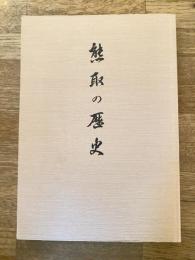 熊取の歴史